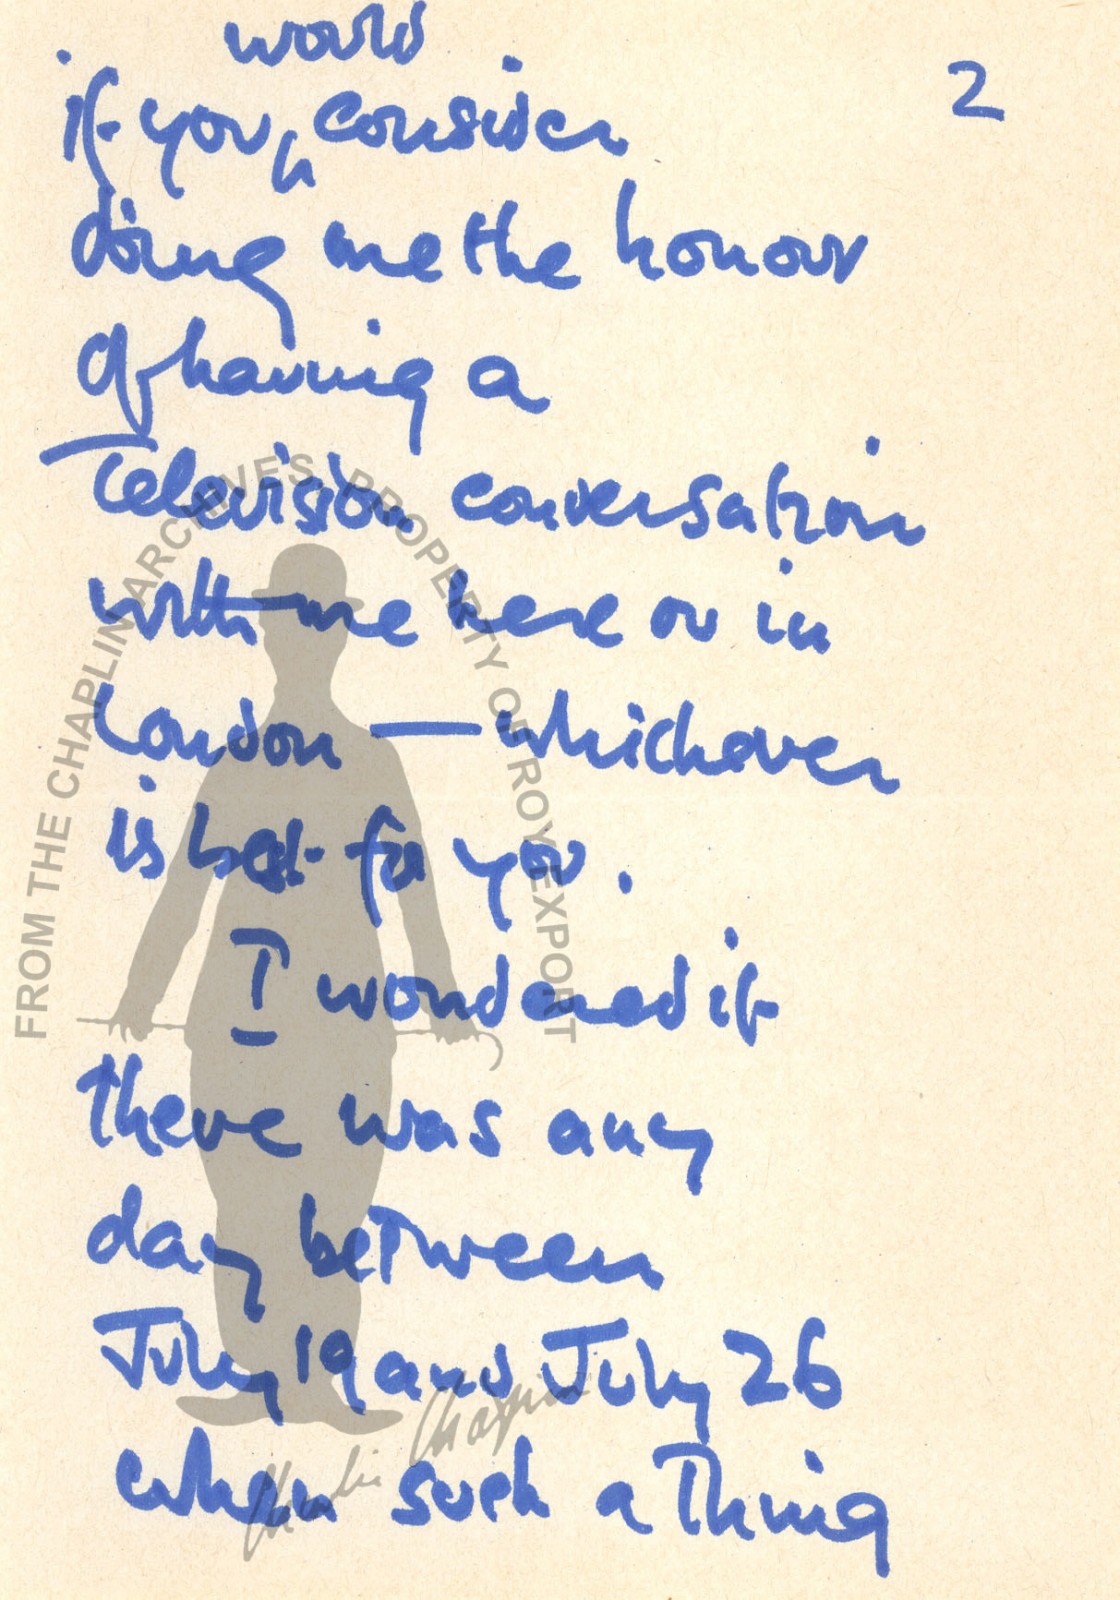 2
would
if you ^ consider
doing me the honour
of having a
Television conversation
with me here or in
London — whichever
is best for you.
I wondered if
there was any
day between
July 19 and July 26
when such a Thing
FROM THE CHAPLIN ARCHIVES, PROPERTY OF ROY EXPORT
Charlie Chaplin